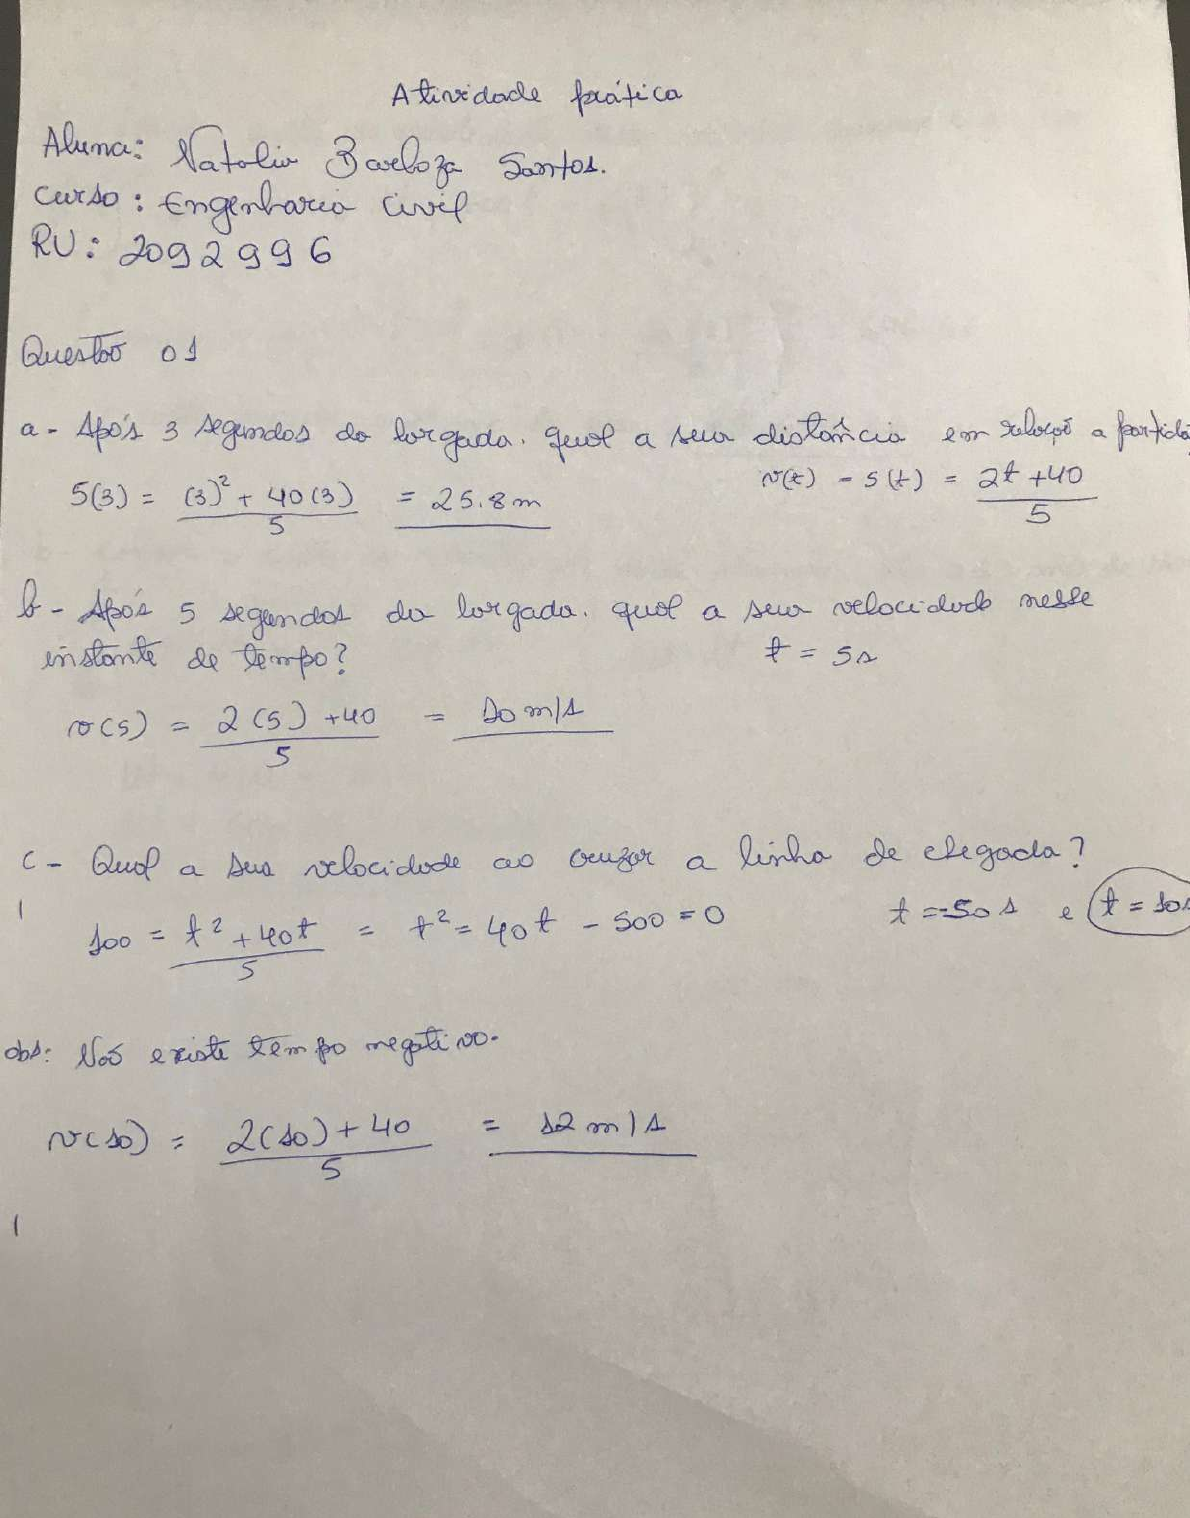 Atividade prática
Aluna: Natalia Barboza Santos.
Curso: Engenharia Civil
RU: 2092996
Questão 01
a - Após 3 segundos da largada. qual a sua distância em relaçõ a partida
S(3) = (3)² + 40(3) / 5 = 25.8m
v(t) - s(t) = 2t + 40 / 5
b - Após 5 segundos da largada. qual a sua velocidade nesse
instante de tempo?
t = 5s
v(5) = 2(5) + 40 / 5 = 10 m/s
c - Qual a sua velocidade ao cruzar a linha de chegada?
100 = t² + 40t / 5 = t² = 40t - 500 = 0
t = -50s e t = 10s
obs: Não existe tempo negativo.
v(10) = 2(10) + 40 / 5 = 12 m/s